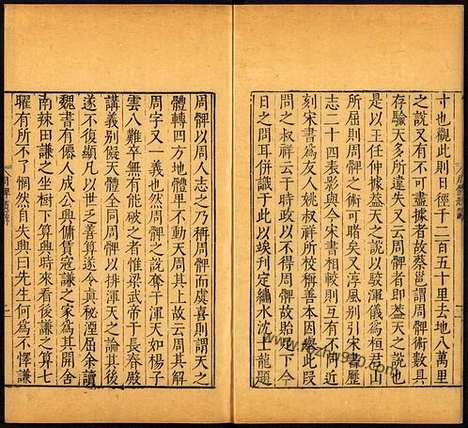 寸也觀此則日徑千二百五十里去地八萬里
之說又有不可盡據者故蔡邕謂周髀術數具
存驗天多所違失又曰周髀即蓋天之說
是以王任仲據蓋天之說以駮渾儀爲桓君山
所屈則周髀之術可睹矣又淳風別引宋書曆
志二十四氣影與今宋書相較則志亦互有
刻宋書爲友人姚叔祥所校稱善本因舉此段
叔祥云于時政以不得周髀故貽此今
日之問耳併識此以埃刊定繡水沈士龍題
周髀以周人志之乃稱周髀而虞喜則謂天之
體轉四方地體不動天周其上故云周其解
周字又一義也然周髀之說奪于渾天如楊子
雲八難卒無有能破之者惟梁武帝于長春殿
講義別儗天體全同周髀以排渾天之論其後
遂不以世乏善算遂令眞秘湮屈余讀
魏書有僊人成公興傭賃寇謙之家爲其開舍
南辣田謙之坐樹下算興時來看後謙之算七
曜有所不了惘然自失興曰先生何爲不懌謙